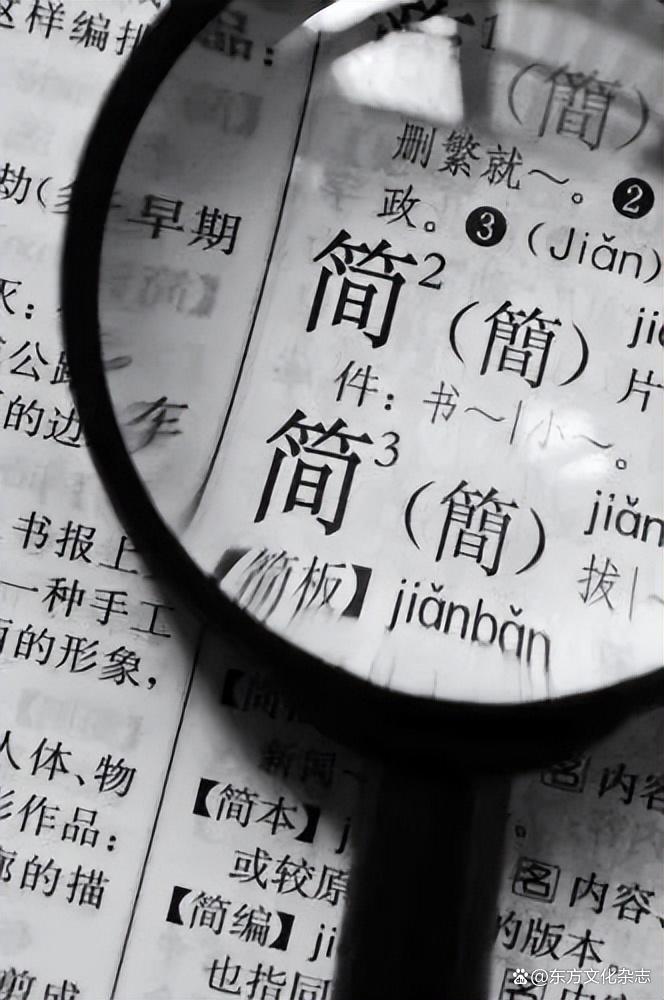 这样编排
品：
劫（
早期
灭：
公路
的边
车
书报上
一种手工
的形象，
人体、物
作品：
的描
剪成
1
（簡）
删繁就～。❷
政。❸（Jiǎn）
简2（簡）
片
件：书～|小～。
简3（簡）jiǎn
拔|～
【简板】jiǎnbǎn
新闻
名 内容
【简本】
或较原
名 内容、
的版本。
【简编】
也指同
名 内
@东方文化杂志